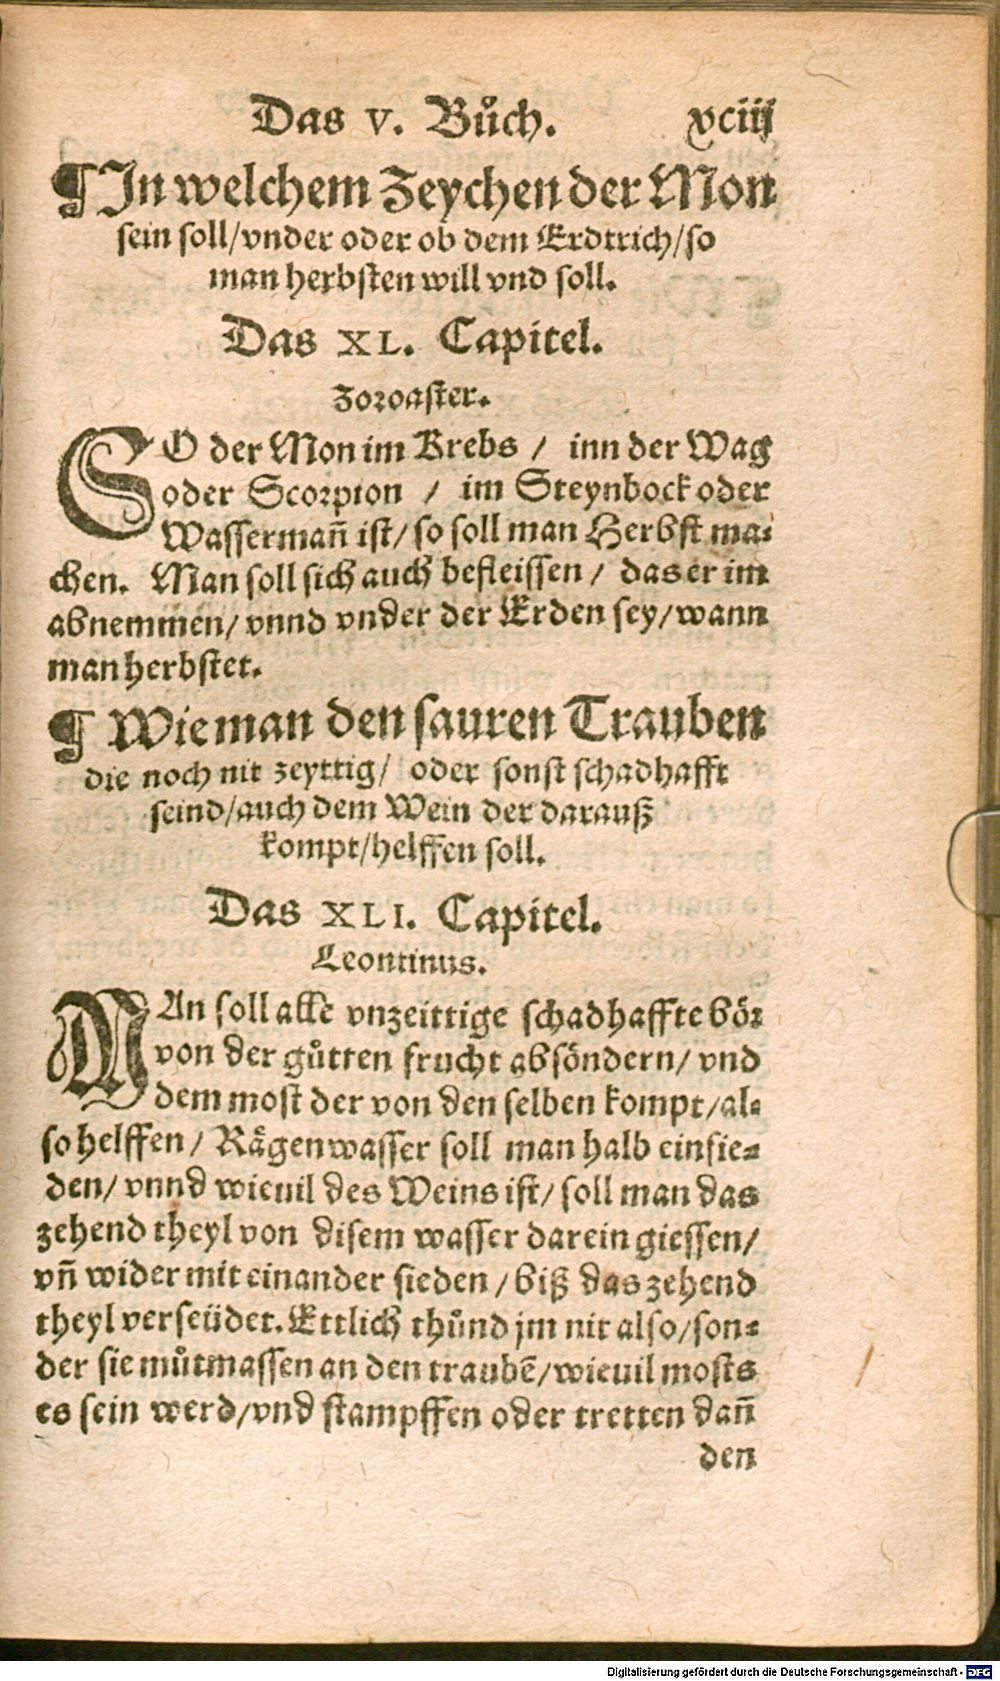 Das V. Bůch. xciij
¶ In welchem Zeychen der Mon
sein soll/vnder oder ob dem Erdtrich/so
man herbsten will vnd soll.
Das XL. Capitel.
Zoroaster.
SO der Mon im Krebs / inn der Wag
oder Scorpion / im Steynbock oder
Wassermañ ist/ so soll man Herbst ma⸗
chen. Man soll sich auch befleissen / das er im
abnemmen/ vnnd vnder der Erden sey/ wann
man herbstet.
¶ Wie man den sauren Trauben
die noch nit zeyttig/ oder sonst schadhafft
seind/auch dem Wein der darauß
kompt/helffen soll.
Das XLI. Capitel.
Leontinus.
MAn soll alle vnzeittige schadhaffte bör
von der gůtten frucht absöndern/ vnd
dem most der von den selben kompt/al⸗
so helffen/ Rägenwasser soll man halb einsie⸗
den/ vnnd wieuil des Weins ist/ soll man das
zehend theyl von disem wasser darein giessen/
vñ wider mit einander sieden / biß das zehend
theyl verseüdet. Ettlich thůnd jm nit also/son⸗
der sie můtmassen an den traubẽ/wieuil mosts
es sein werd/vnd stampffen oder tretten dañ
den
Digitalisierung gefördert durch die Deutsche Forschungsgemeinschaft - DFG